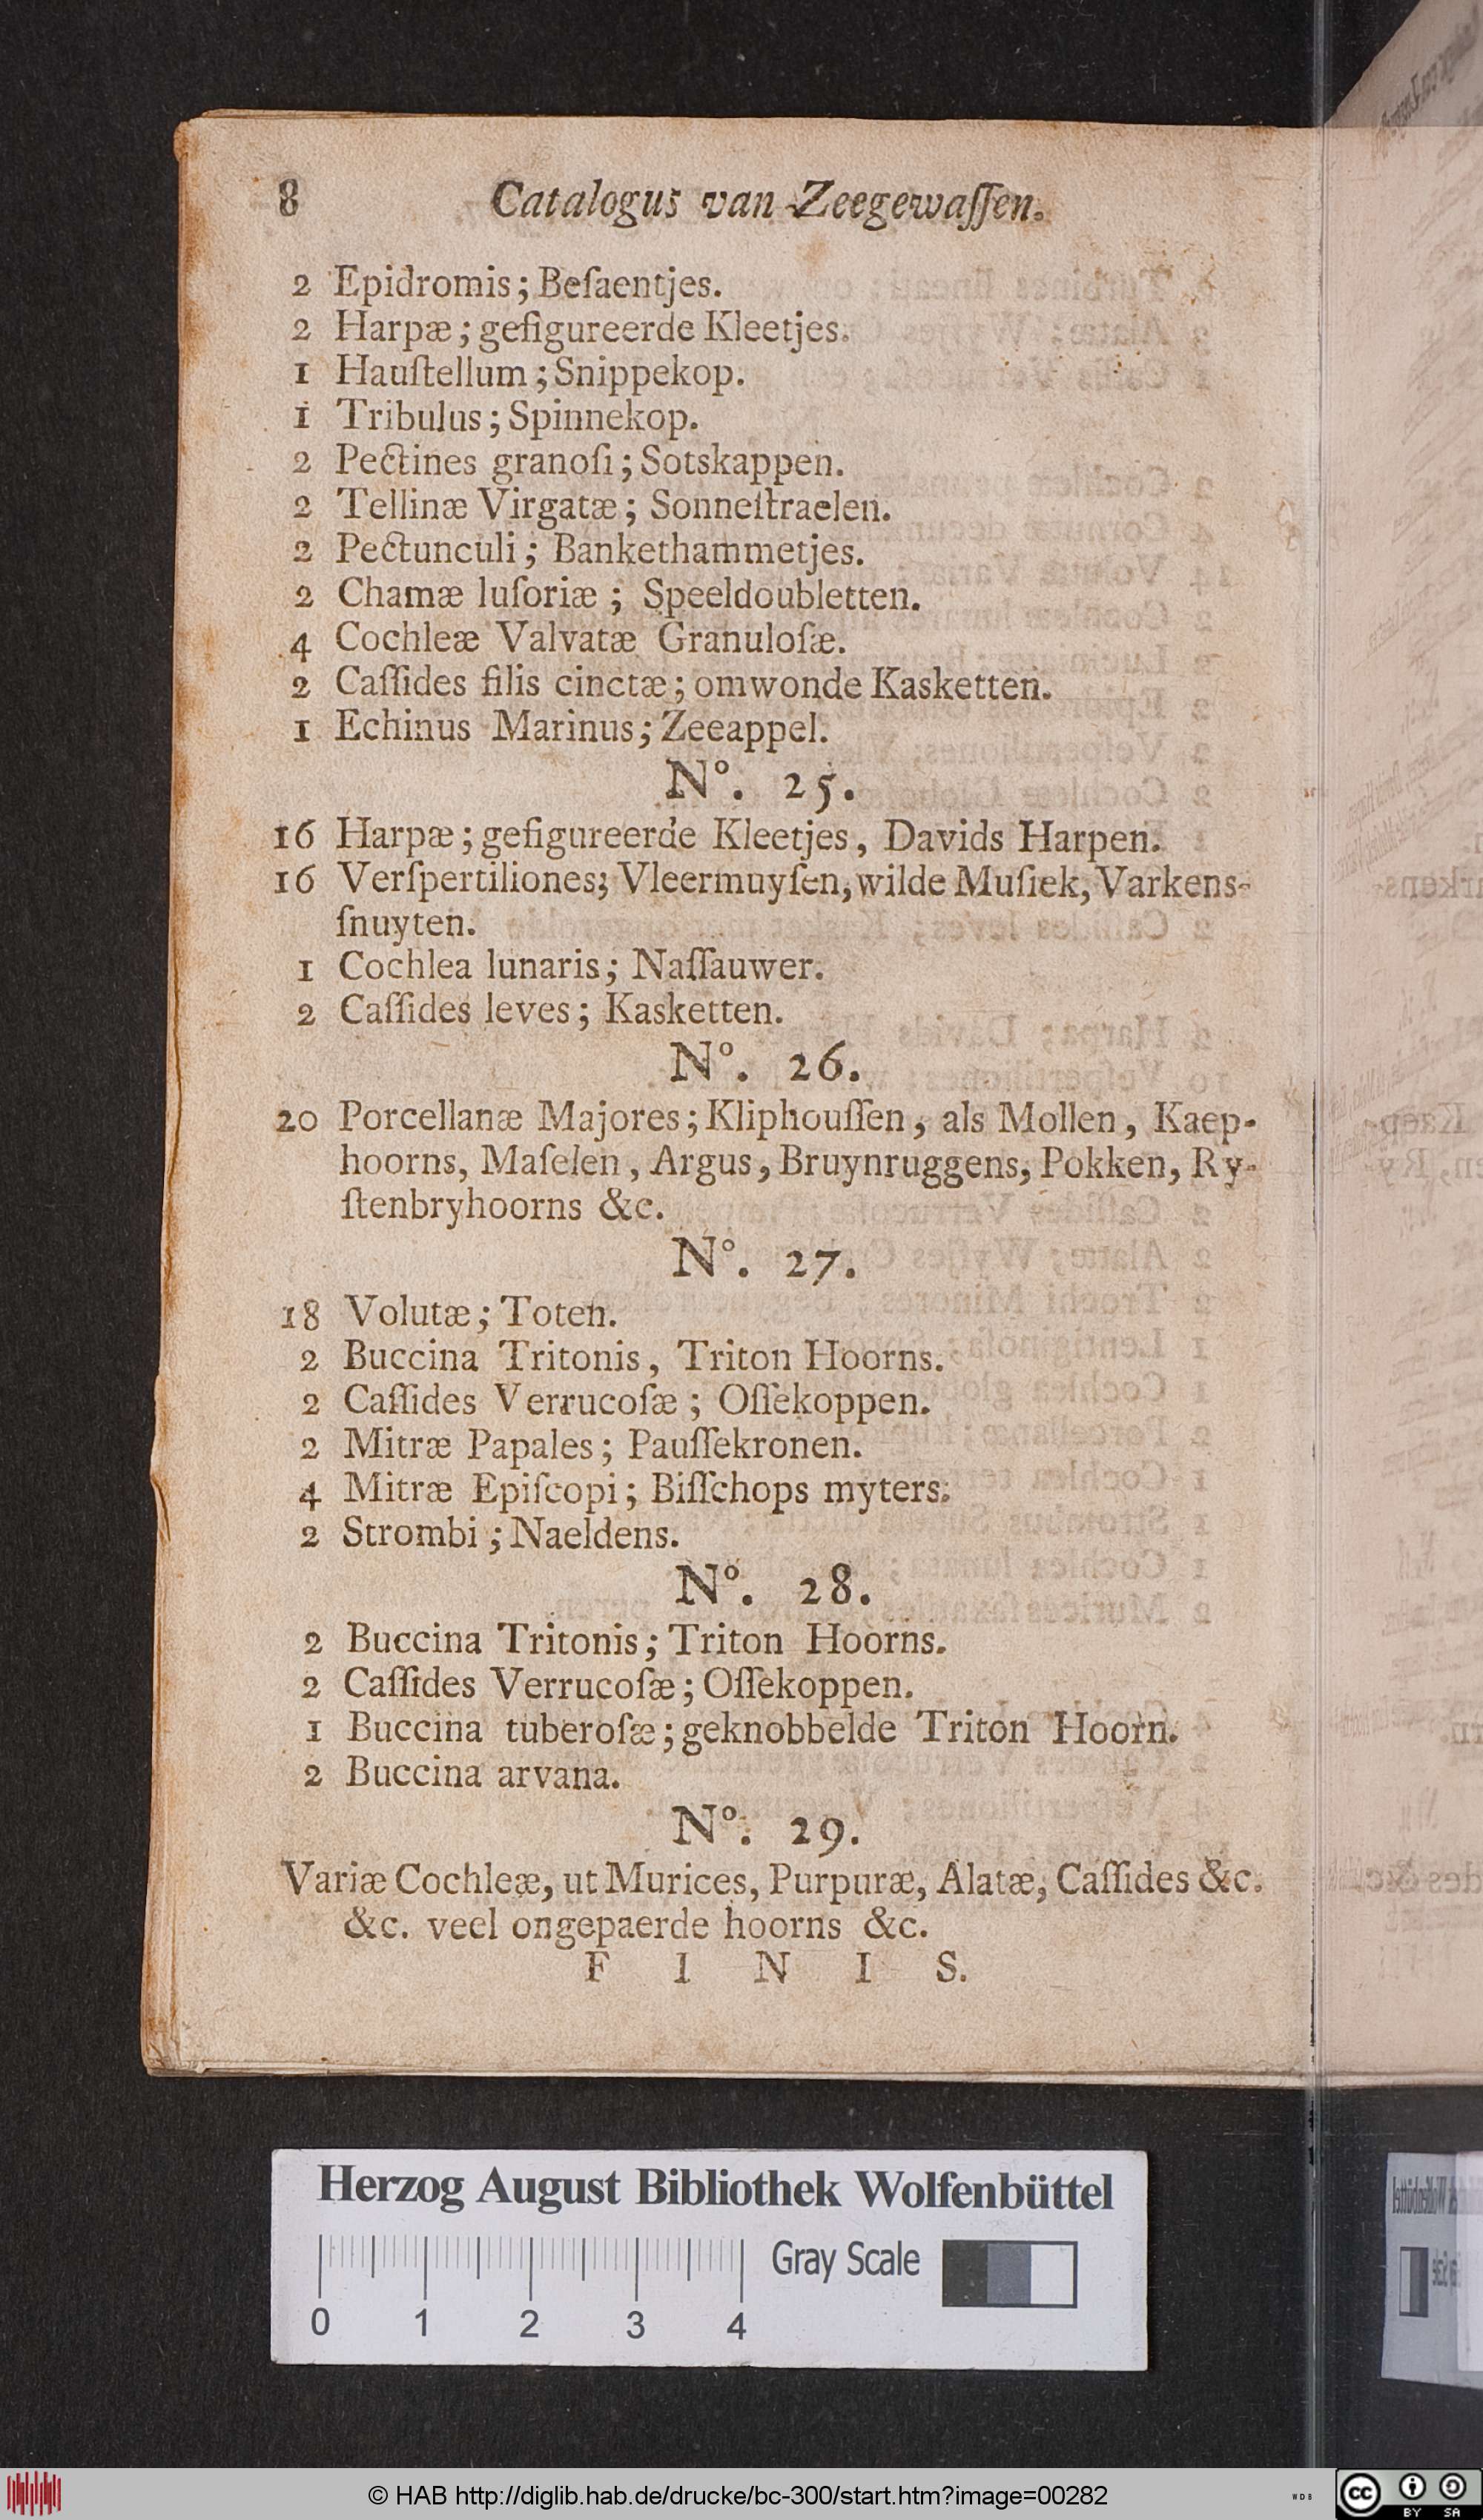 8 Catalogus van Zeegewaſſen.
2 Epidromis; Beſaentjes.
2 Harpæ; gefigureerde Kleetjes.
1 Hauſtellum; Snippekop.
1 Tribulus; Spinnekop.
2 Pectines granoſi; Sotskappen.
2 Tellinæ Virgatæ; Sonneſtraelen.
2 Pectunculi; Bankethammetjes.
2 Chamæ luſoriæ; Speeldoubletten.
4 Cochleæ Valvatæ Granuloſæ.
2 Caſſides filis cinctæ; omwonde Kasketten.
1 Echinus Marinus; Zeeappel.
Nº. 25.
16 Harpæ; gefigureerde Kleetjes, Davids Harpen.
16 Verſpertiliones; Vleermuyſen, wilde Muſiek, Varkens-
ſnuyten.
1 Cochlea lunaris; Naſſauwer.
2 Caſſides leves; Kasketten.
Nº. 26.
20 Porcellanæ Majores; Kliphouſſen, als Mollen, Kaep-
hoorns, Maſelen, Argus, Bruynruggens, Pokken, Ry-
ſtenbryhoorns &c.
Nº. 27.
18 Volutæ; Toten.
2 Buccina Tritonis, Triton Hoorns.
2 Caſſides Verrucoſæ; Oſſekoppen.
2 Mitræ Papales; Pauſſekronen.
4 Mitræ Epiſcopi; Biſſchops myters.
2 Strombi; Naeldens.
Nº. 28.
2 Buccina Tritonis; Triton Hoorns.
2 Caſſides Verrucoſæ; Oſſekoppen.
1 Buccina tuberoſæ; geknobbelde Triton Hoorn.
2 Buccina arvana.
Nº. 29.
Variæ Cochleæ, ut Murices, Purpuræ, Alatæ, Caſſides &c.
&c. veel ongepaerde hoorns &c.
F I N I S.
Herzog August Bibliothek Wolfenbüttel
Gray Scale
0 1 2 3 4
© HAB http://diglib.hab.de/drucke/bc-300/start.htm?image=00282
WDB
cc BY SA